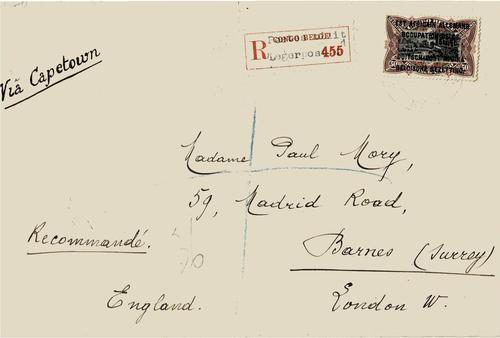 Viâ Capetown
CONGO BELGE
R
455
EST AFRICAIN ALLEMAND
OCCUPATION BELGE
DUITSCH OOST AFRIKA
BELGISCHE BEZETTING
Madame Paul Mory,
59, Madrid Road,
Recommandé.
Barnes (Surrey)
England.
London W.